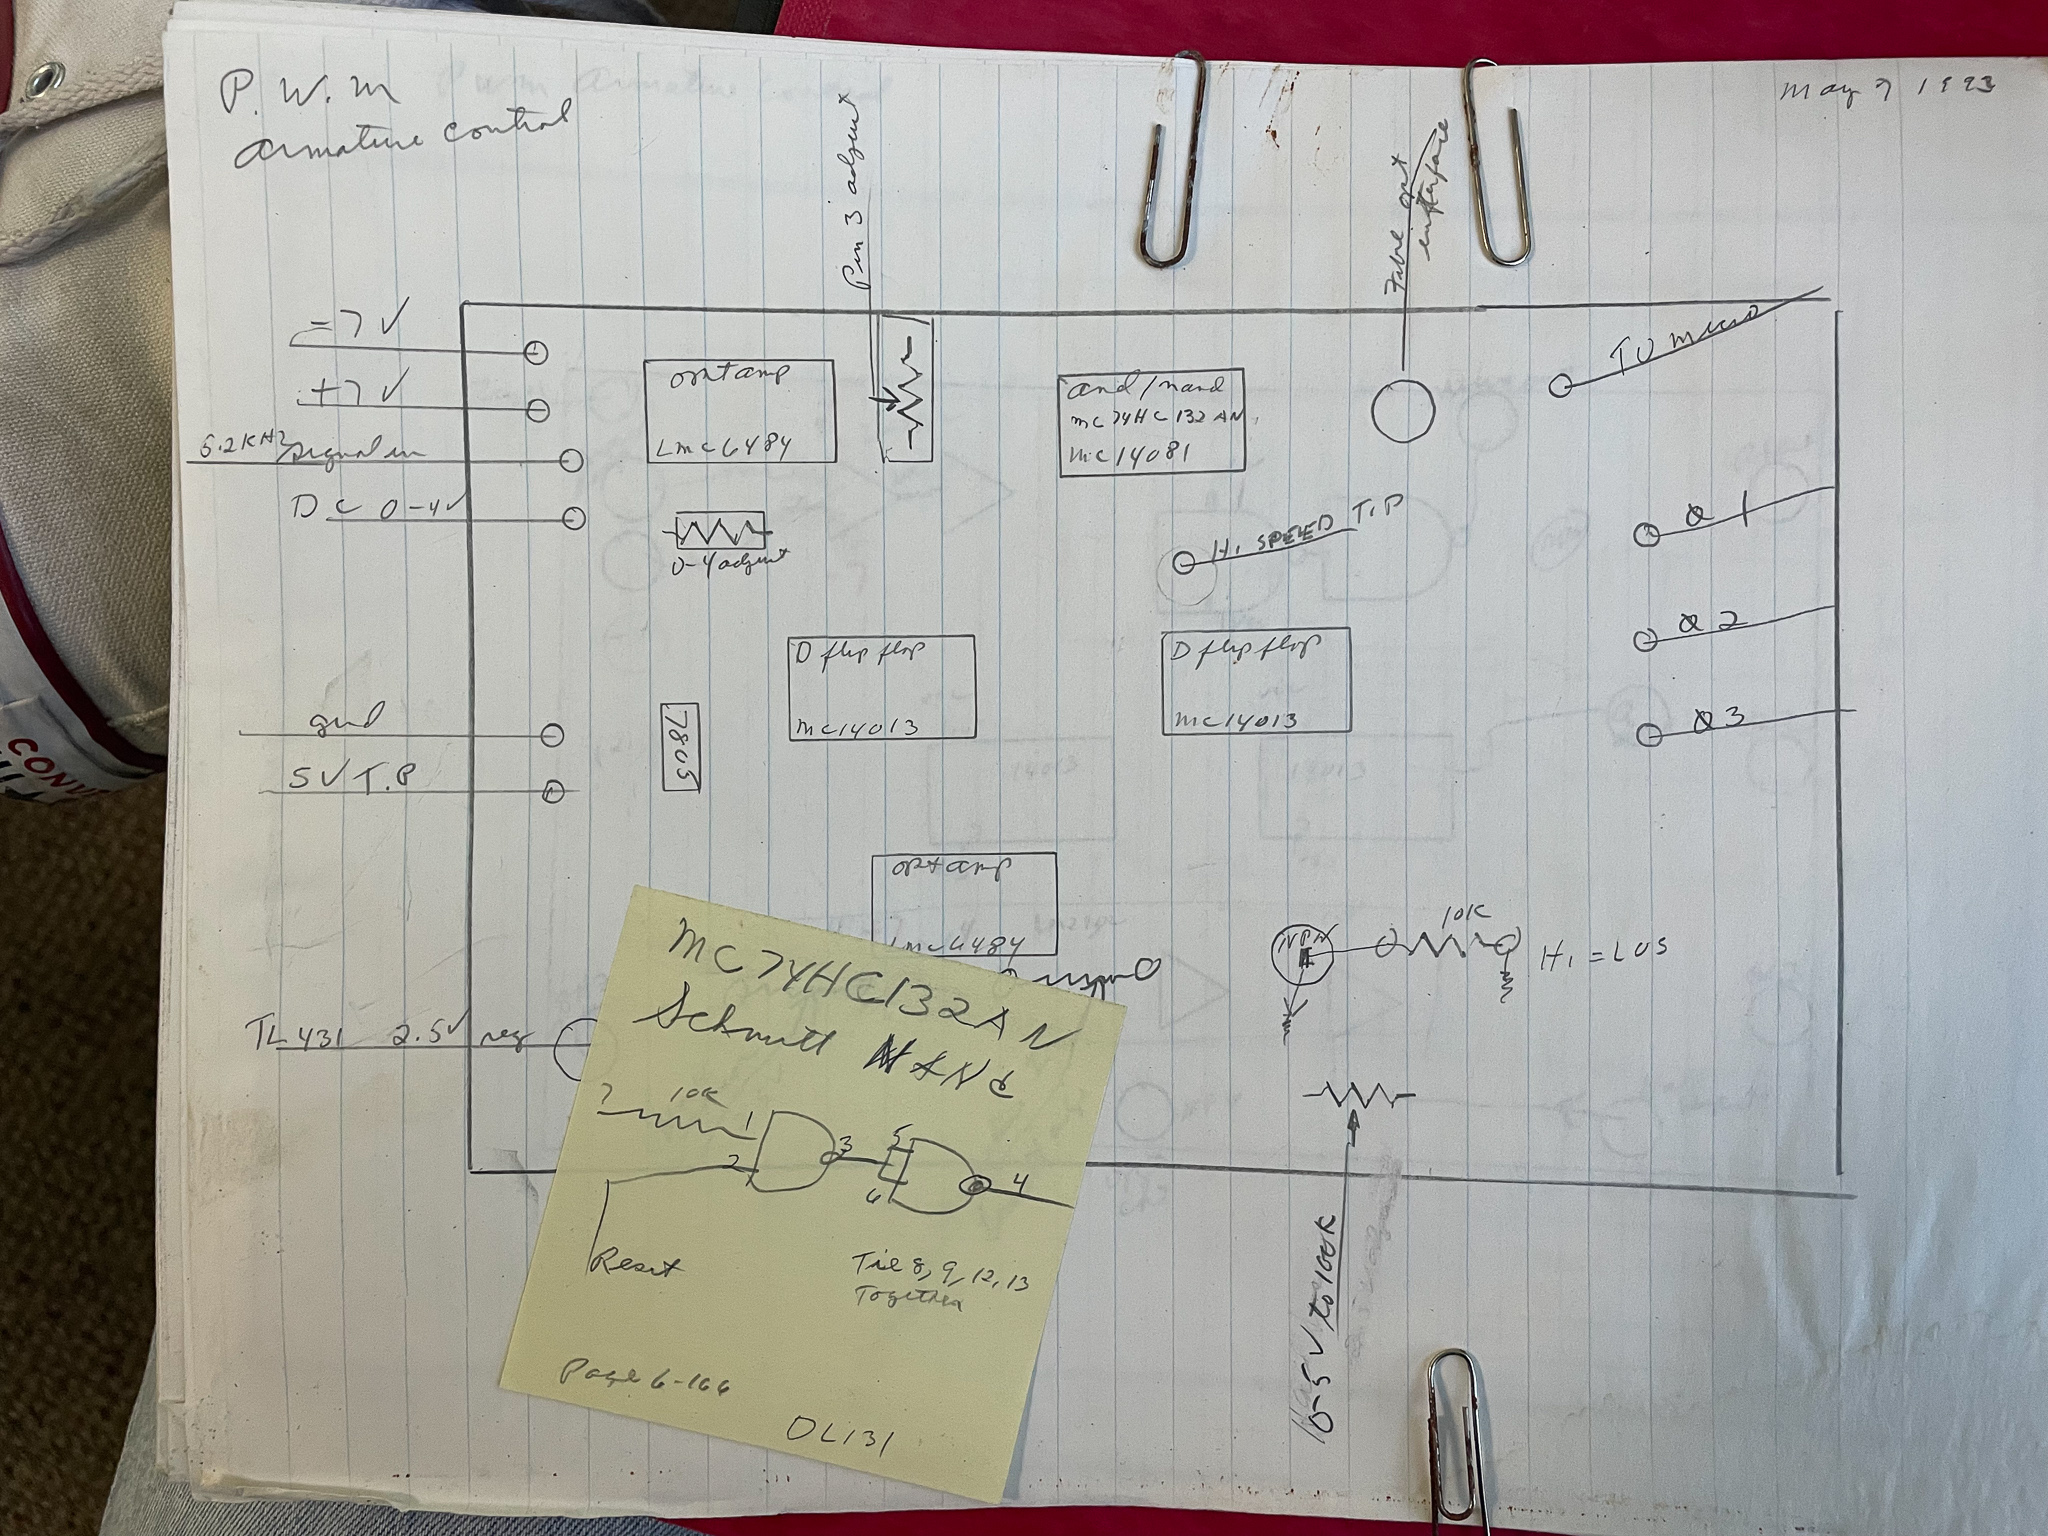 P.W.M
armature control
May 7 1993
Pin 3 adjust
interface
-7V
+7V
5.2KHz/signal in
DC 0-4V
gnd
5V T.P
TL431 2.5V reg
optamp
LMC6484
0-4 adjust
and/nand
MC74HC132AN
MC14081
TO micro
Hi SPEED T.P
Q1
Q2
Q3
D flip flop
MC14013
D flip flop
MC14013
7805
optamp
LMC6484
NPN
10K
Hi = LOS
0-5V to 100K
MC74HC132AN
Schmitt NANd
10K
1
2
3
5
6
4
Reset
Tie 8, 9, 12, 13
Together
Page 6-166
DL131
CONV